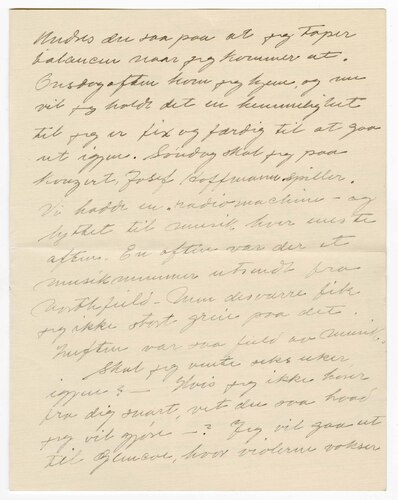 Undres du saa paa at jeg taper
balancen naar jeg kommer ut.
Onsdag aften kom jeg hjem, og nu
vil jeg holdt det en hemmelighet
til jeg er fix og færdig til at gaa
ut igjen. Søndag skal jeg paa
konzert, Josef Hoffmann spiller.
Vi hadde en "radio machine" og
lyttet til musik hver eneste
aften. En aften var der et
musiknummer utsendt fra
Northfield – Men desværre fik
jeg ikke stort greie paa det.
Luften var saa fuld av musik.
Skal jeg vente seks uker
igjen? – Hvis jeg ikke hører
fra dig snart, vet du saa hvad
jeg vil gjøre –? Jeg vil gaa ut
til Glencoe, hvor violerne vokser